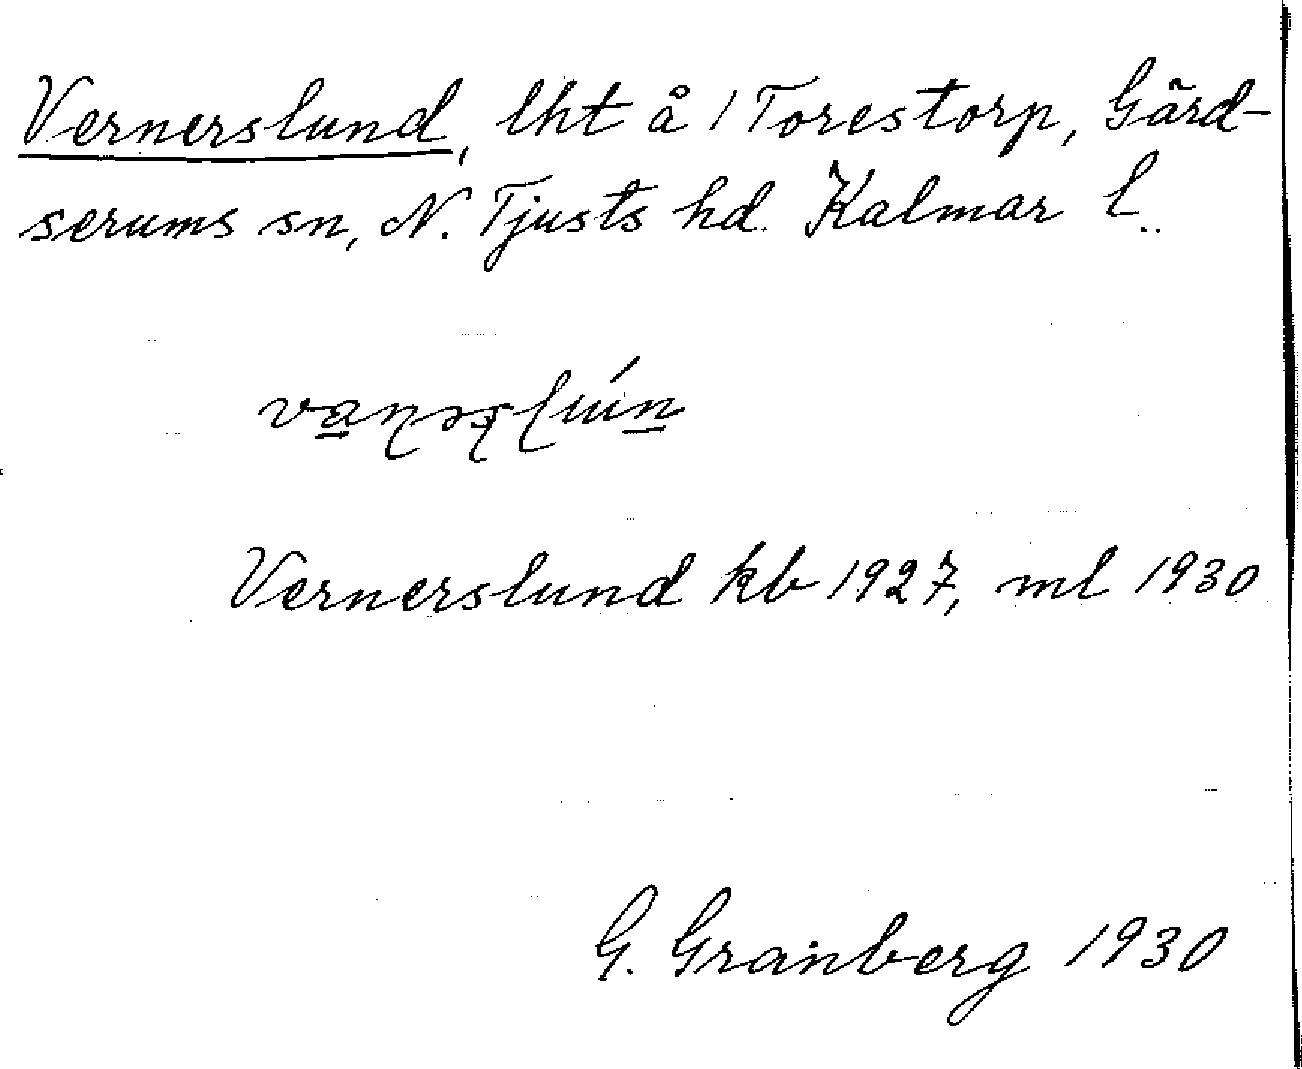 Vernerslund, lht å 1 Torestorp, Gärd-
serums sn, N. Tjusts hd. Kalmar l.
Vernerslund kb 1927, ml 1930
G. Granberg 1930